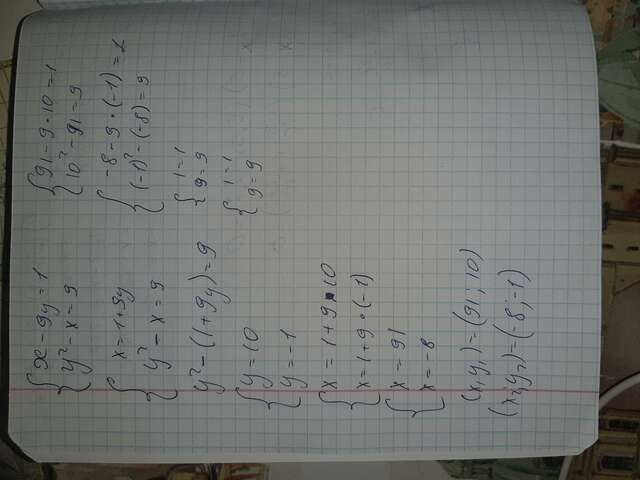 {x - 9y = 1
{y² - x = 9
{x = 1 + 9y
{y² - x = 9
y² - (1 + 9y) = 9
{y = 10
{y = -1
{x = 1 + 9 · 10
{x = 1 + 9 · (-1)
{x = 91
{x = -8
(x₁y₁) = (91; 10)
(x₂y₂) = (-8; -1)
{91 - 9 · 10 = 1
{10² - 91 = 9
{-8 - 9 · (-1) = 1
{(-1)² - (-8) = 9
{1 = 1
{9 = 9
{1 = 1
{9 = 9